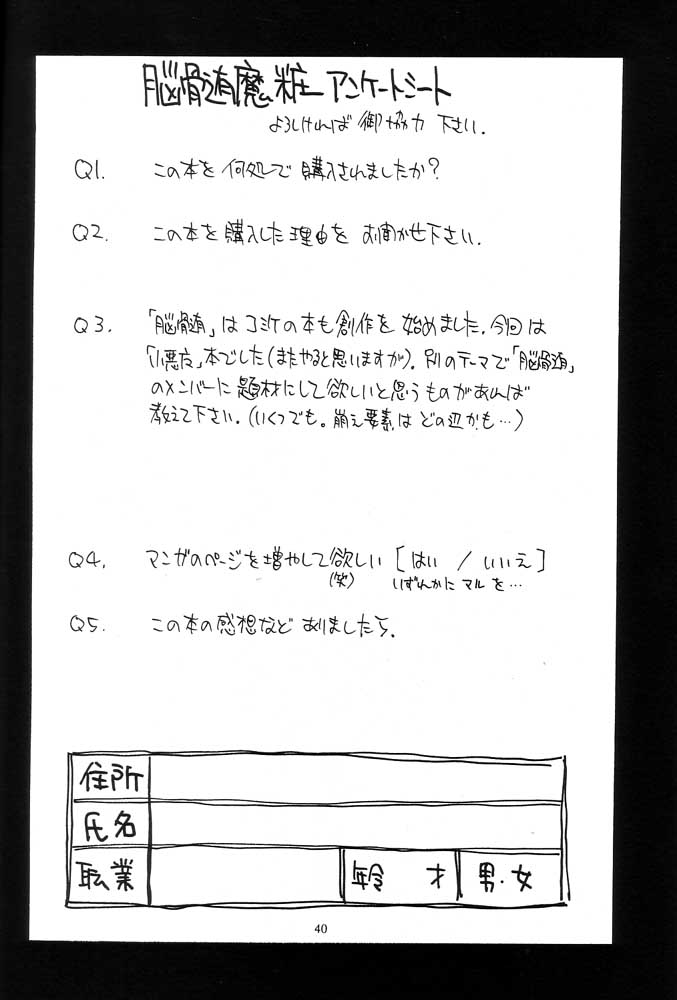 脳骨随魔粧 アンケートシート
よろしければ 御協力 下さい.
Q1. この本を何処で購入されましたか?
Q2. この本を購入した理由を お聞かせ下さい.
Q3. 「脳骨随」は コミケの本も創作を 始めました. 今回は
「小悪魔」本でした(またやると思いますが). 別のテーマで「脳骨随」
のメンバーに 題材にして欲しいと思うものがあれば
教えて下さい. (いくつでも。崩え要素は どの辺かも…)
Q4. マンガのページを増やして欲しい [はい / いいえ]
(笑) いずれかに マル を…
Q5. この本の感想など ありましたら.
住所
氏名
職業 年令 才 男・女
40